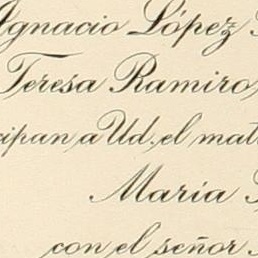 Ignacio López
Teresa Ramiro,
cipan a Ud. el mat
María
con el señor